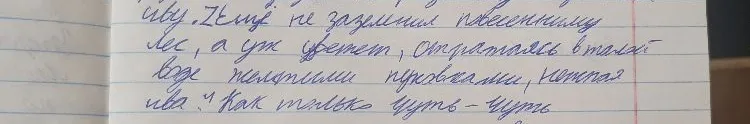 иву. Ещё не зазеленил повесеннему
лес, а уж цветет, отражаясь в талой
воде желтыми пуховками, нежная
ива." Как только чуть-чуть